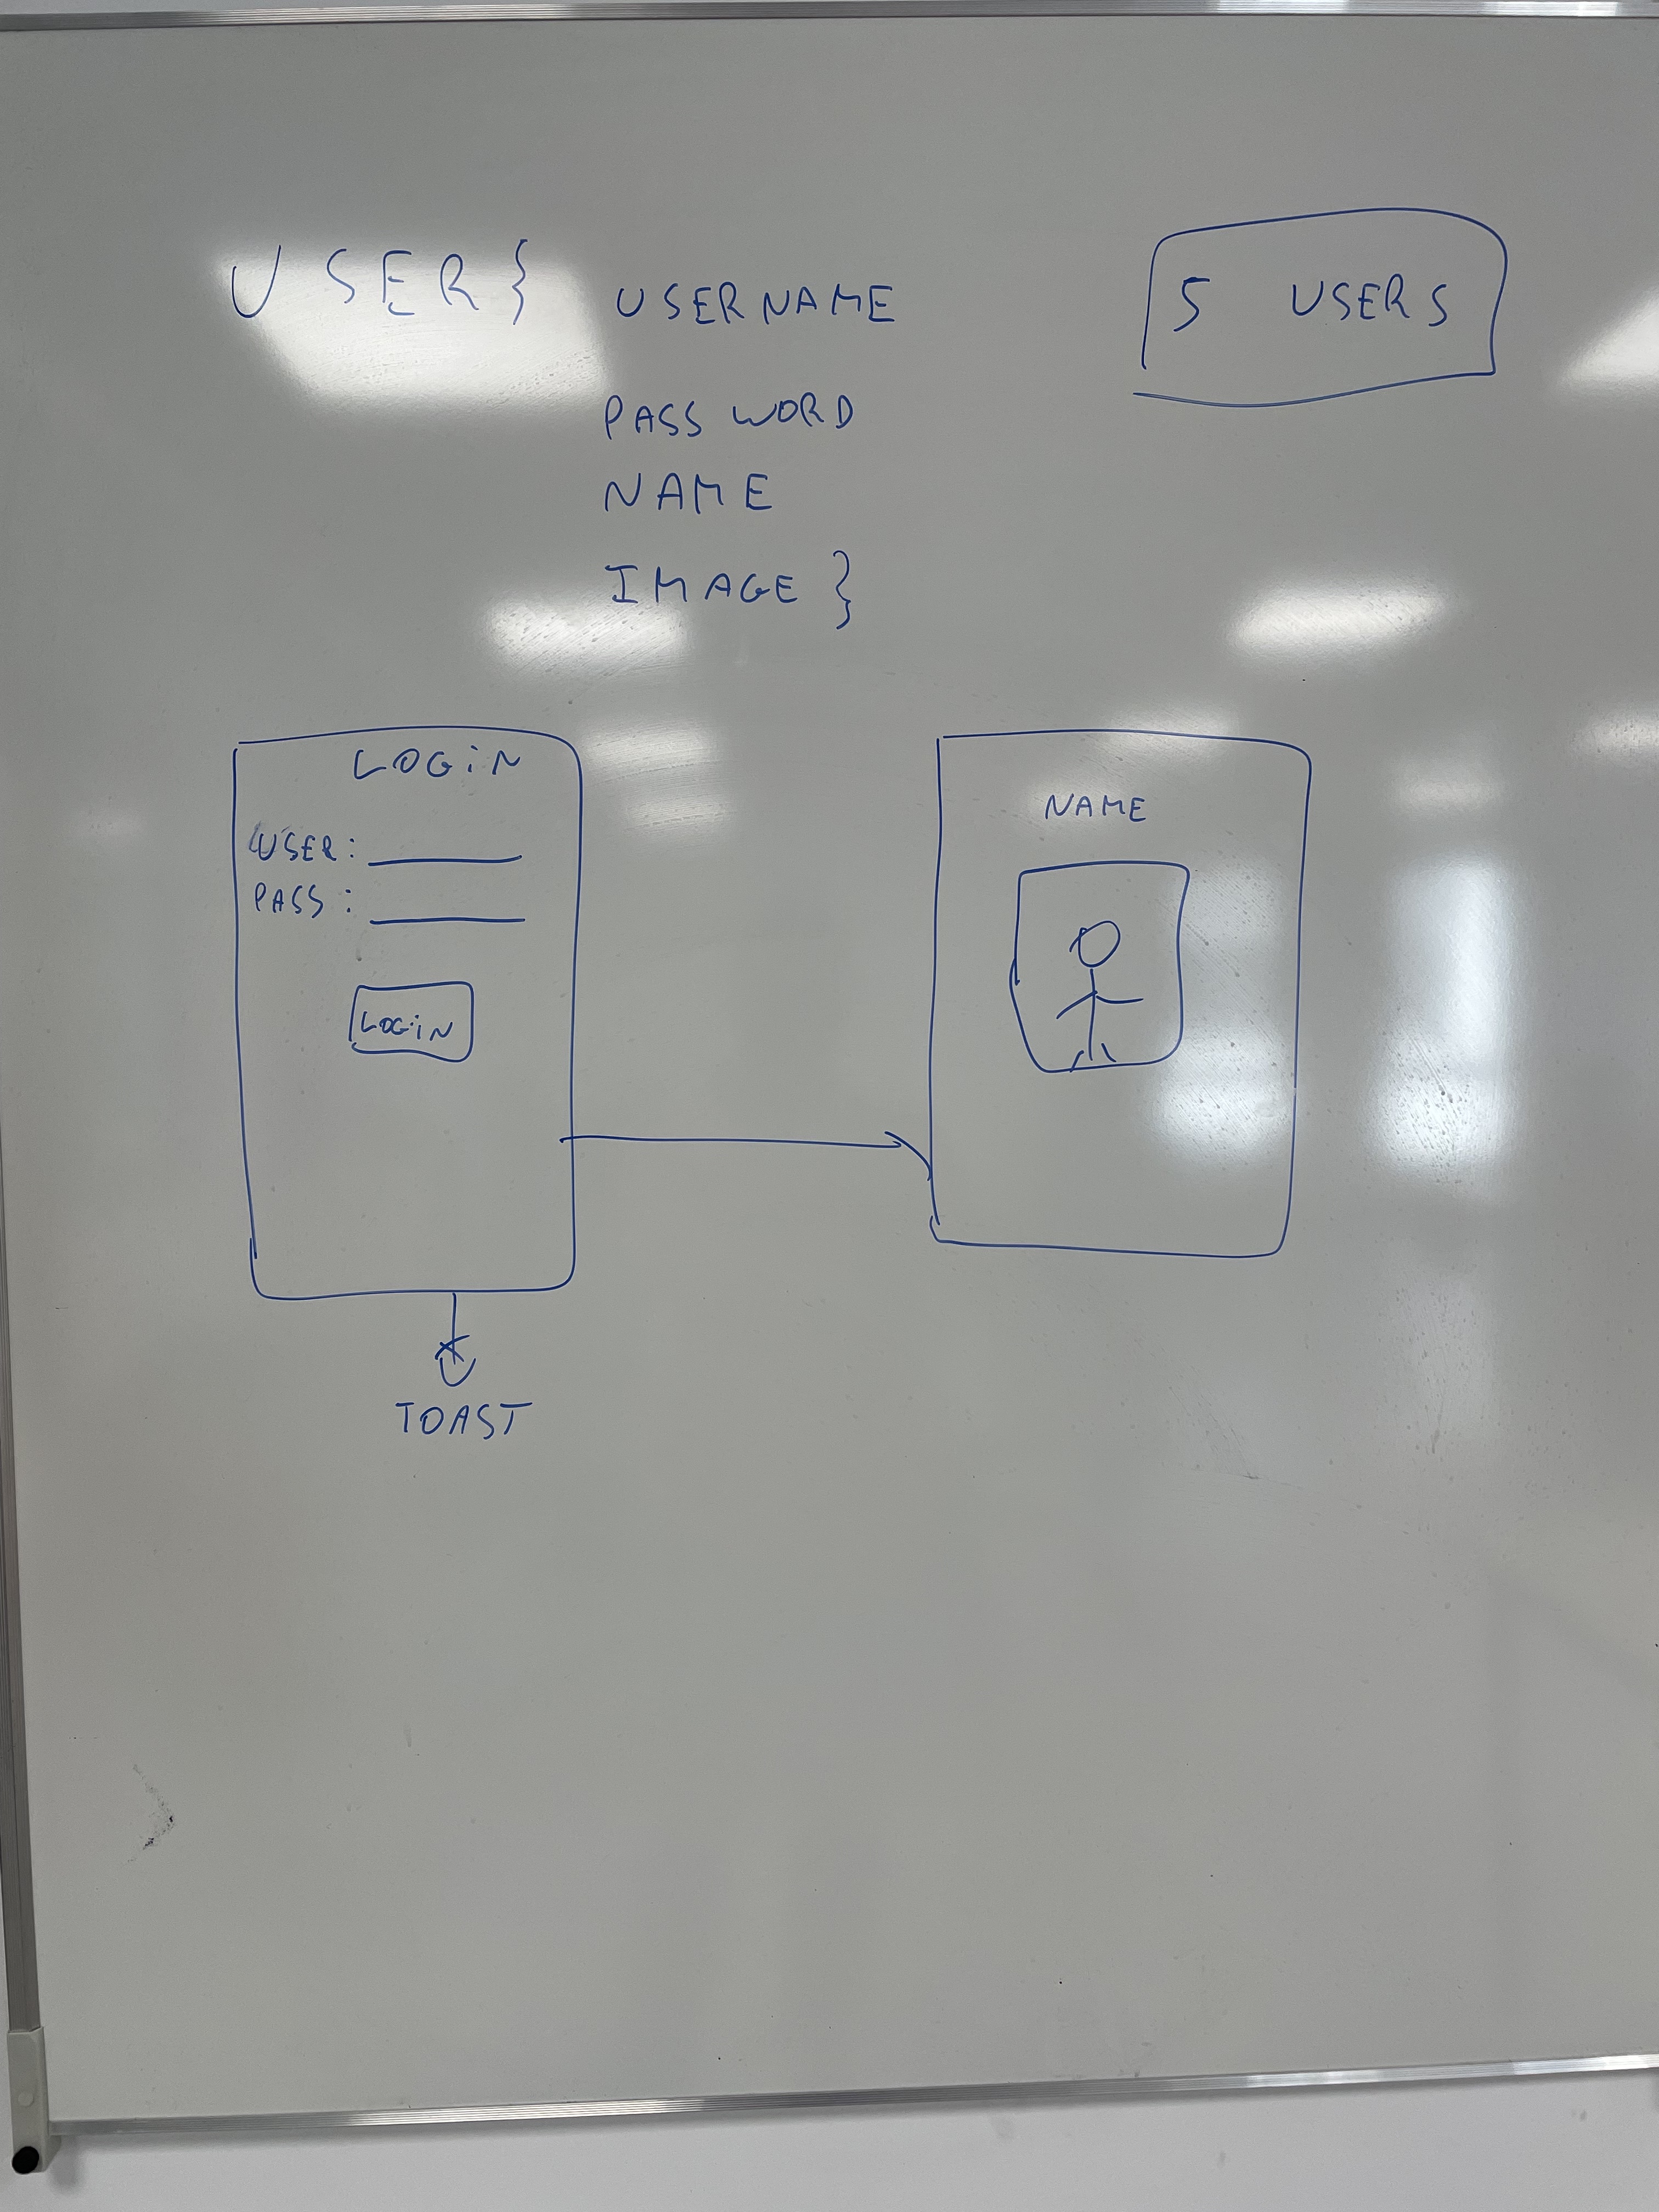 USER} USERNAME
PASSWORD
NAME
IMAGE }
5 USERS
LOGiN
USER:
PASS:
LOGiN
TOAST
NAME